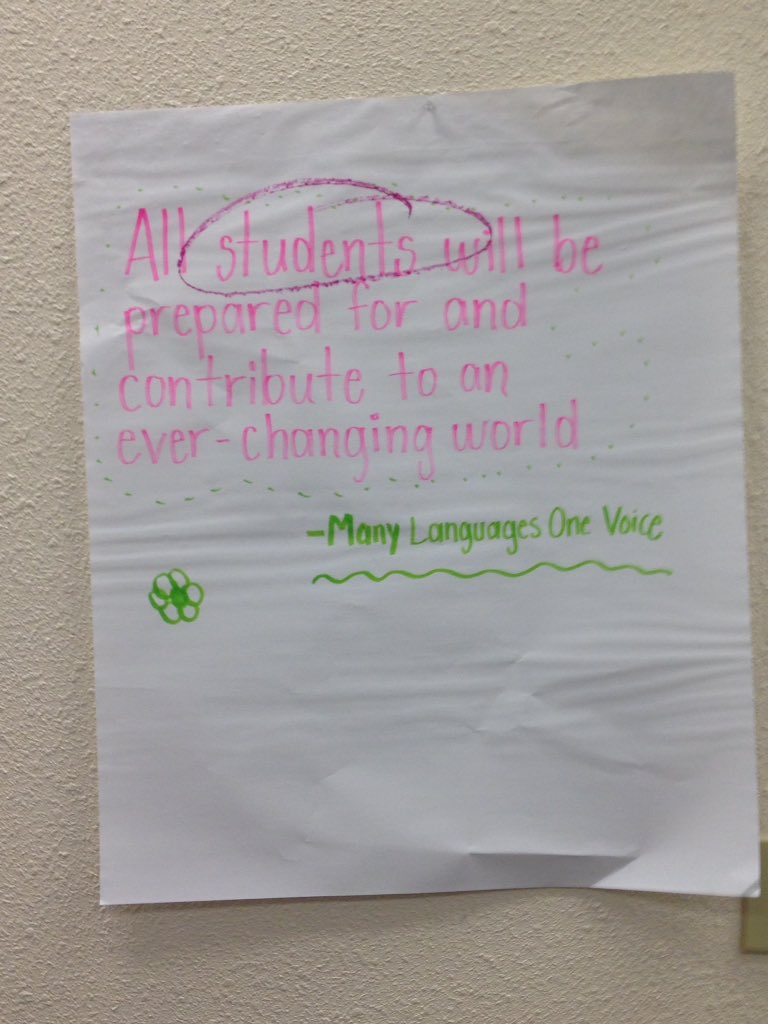 All students will be
prepared for and
contribute to an
ever-changing world
-Many Languages One Voice